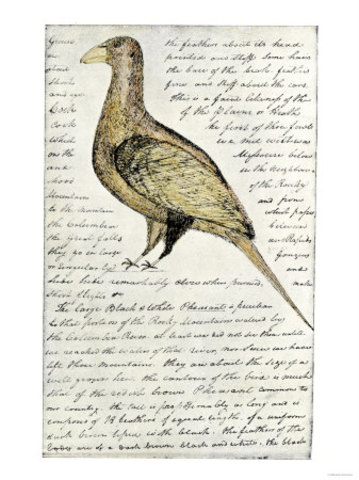 Grows the feathers about its head
pointed and stiff Some hairs
the base of the beak. feathers
short fine and stiff about the ears.
and eye This is a faint likeness of the
Cock of the Plains or Heath
Cock the first of those fowls
which we met with was
on the Missouri below
and in the neighbour
of the Rocky
Mountains and from
to the mountain which passes
the Columbia between
the Great falls and Rapids
they go in large Gangues
or Singularly and
hide hide remarkably close when pursued, make
short flights &c
The large Black & White Pheasant is peculiar
to that portion of the Rocky Mountains watered by
the Columbia River. at least we did not see them until
we reached the waters of that river, nor since we have
left those mountains. They are about the size of a
well grown hen. the contour of the bird is much
that of the redish brown Pheasant common to
our country. the tail is proportionably as long and is
composed of 18 feathers of equal length, of a uniform
dark brown tiped with black. the feathers of the
body are of a dark brown black and white. the black